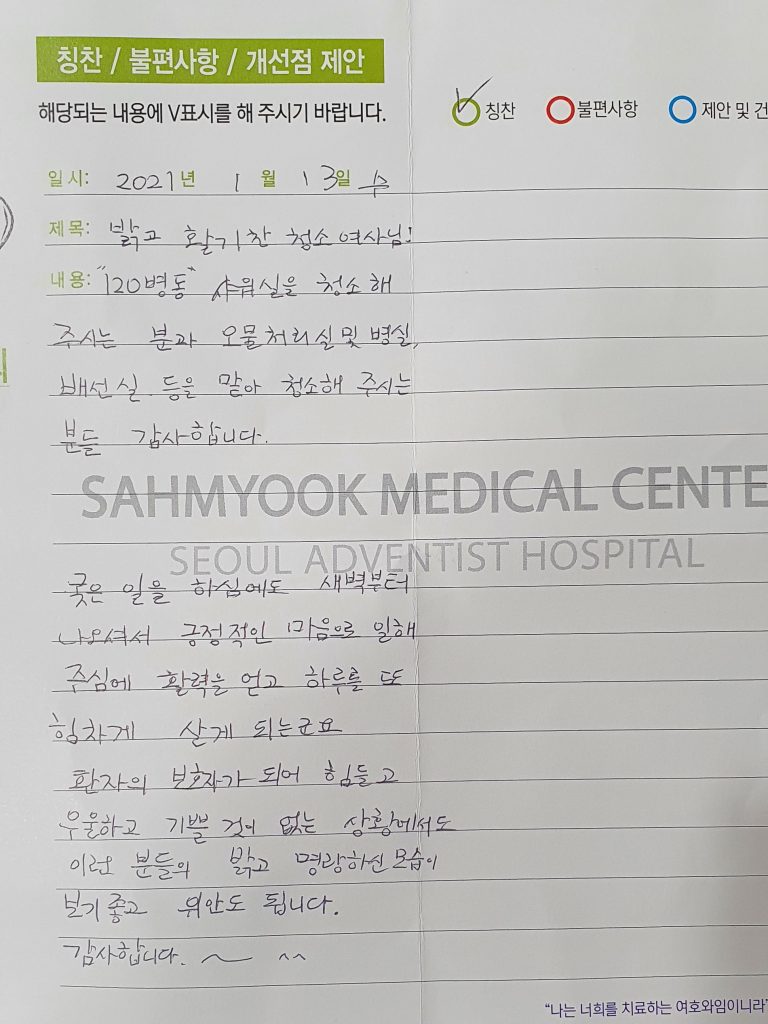 칭찬 / 불편사항 / 개선점 제안
해당되는 내용에 V표시를 해 주시기 바랍니다.
칭찬 불편사항 제안 및 건
일시: 2021년 1월 13일 수
제목: 밝고 활기찬 청소 여사님!
내용: "120병동" 샤워실을 청소해
주시는 분과 오물처리실 및 병실,
배선실 등을 맡아 청소해 주시는
분들 감사합니다.
SAHMYOOK MEDICAL CENTE
SEOUL ADVENTIST HOSPITAL
궂은 일을 하심에도 새벽부터
나오셔서 긍정적인 마음으로 일해
주심에 활력을 얻고 하루를 또
힘차게 살게 되는군요
환자의 보호자가 되어 힘들고
우울하고 기쁠 것이 없는 상황에서도
이런 분들의 밝고 명랑하신 모습이
보기 좋고 위안도 됩니다.
감사합니다. ~ ^^
"나는 너희를 치료하는 여호와임이니라"